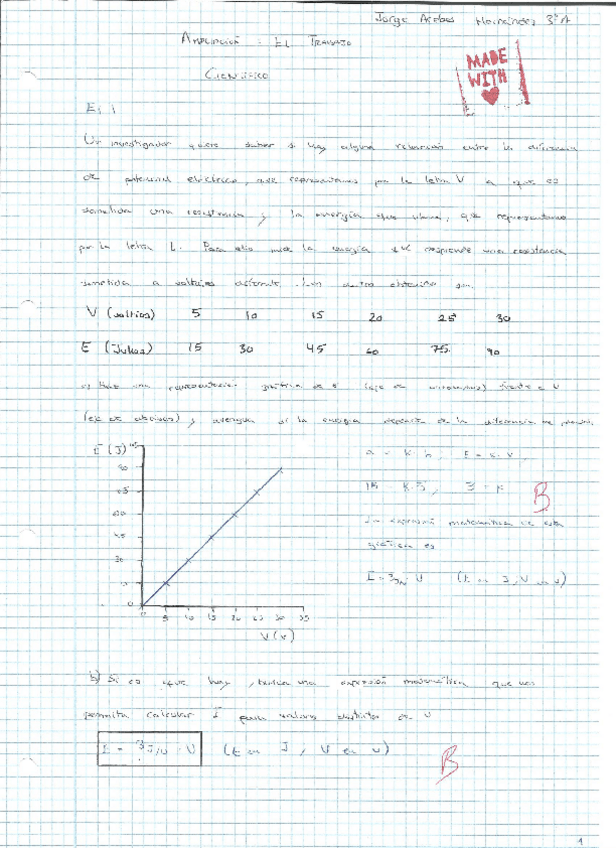 Jorge Acebes Hernández 3ºA
Ampliación : El Trabajo
Científico
MADE
WITH
Ej 1
Un investigador quiere saber si hay alguna relación entre la diferencia
de potencial eléctrico, que representamos por la letra V a que es
sometida una resistencia y la energía que , que representamos
por la letra E. Para ello mide la energía que desprende una resistencia
sometida a voltajes diferente . Los datos obtenidos son.
V (voltios) 5 10 15 20 25 30
E (Julios) 15 30 45 60 75 90
a) Haz una representación gráfica de E (eje de ordenadas) frente a V
(eje de abscisas) y averigua si la energía depende de la diferencia de
E (J)
90
75
60
45
30
15
0
0 5 10 15 20 25 30 35
V (v)
a = K · b ; E = K · V
15 = K · 5 ; 3 = K
B
La expresión matemática de esta
gráfica es
E = 3 J/v · V (E en J, V en v)
b) Si es que hay , una expresión matemática que nos
permita calcular E para valores distintos de V
E = 3 J/v · V (E en J, V en v)
B
1